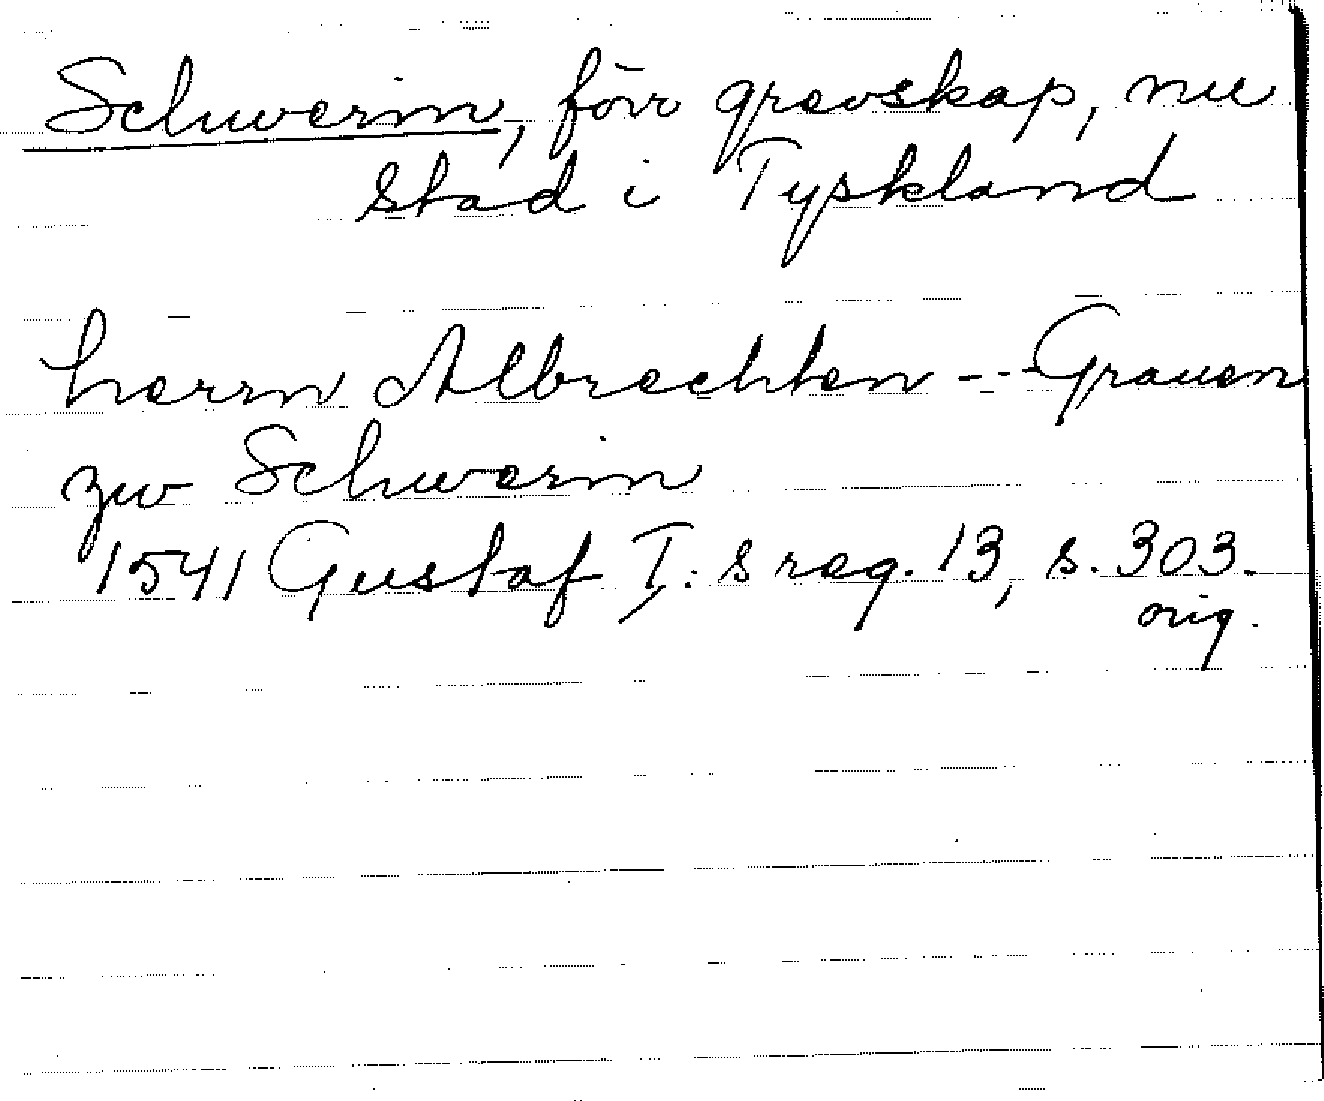 Schwerin, förr grevskap, nu
stad i Tyskland
herrn Albrechten --- Grauen
zw Schwerin
1541 Gustaf I:s reg. 13, s. 303.
orig.